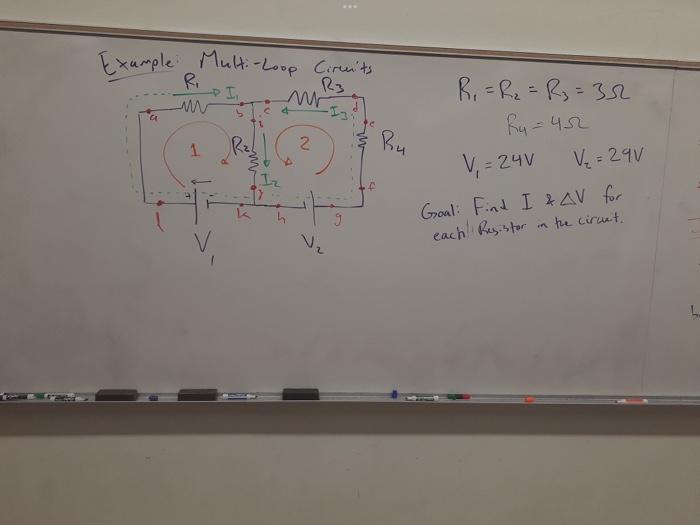 Example: Multi-Loop Circuits
R₁ I₁ R₃
a b c d
i I₃ e
1 R₂ 2 R₄
I₂
j f
+ -
l k h g
V₁ V₂
R₁ = R₂ = R₃ = 3Ω
R₄ = 4Ω
V₁ = 24V V₂ = 29V
Goal: Find I & ΔV for
each Resistor in the circuit.